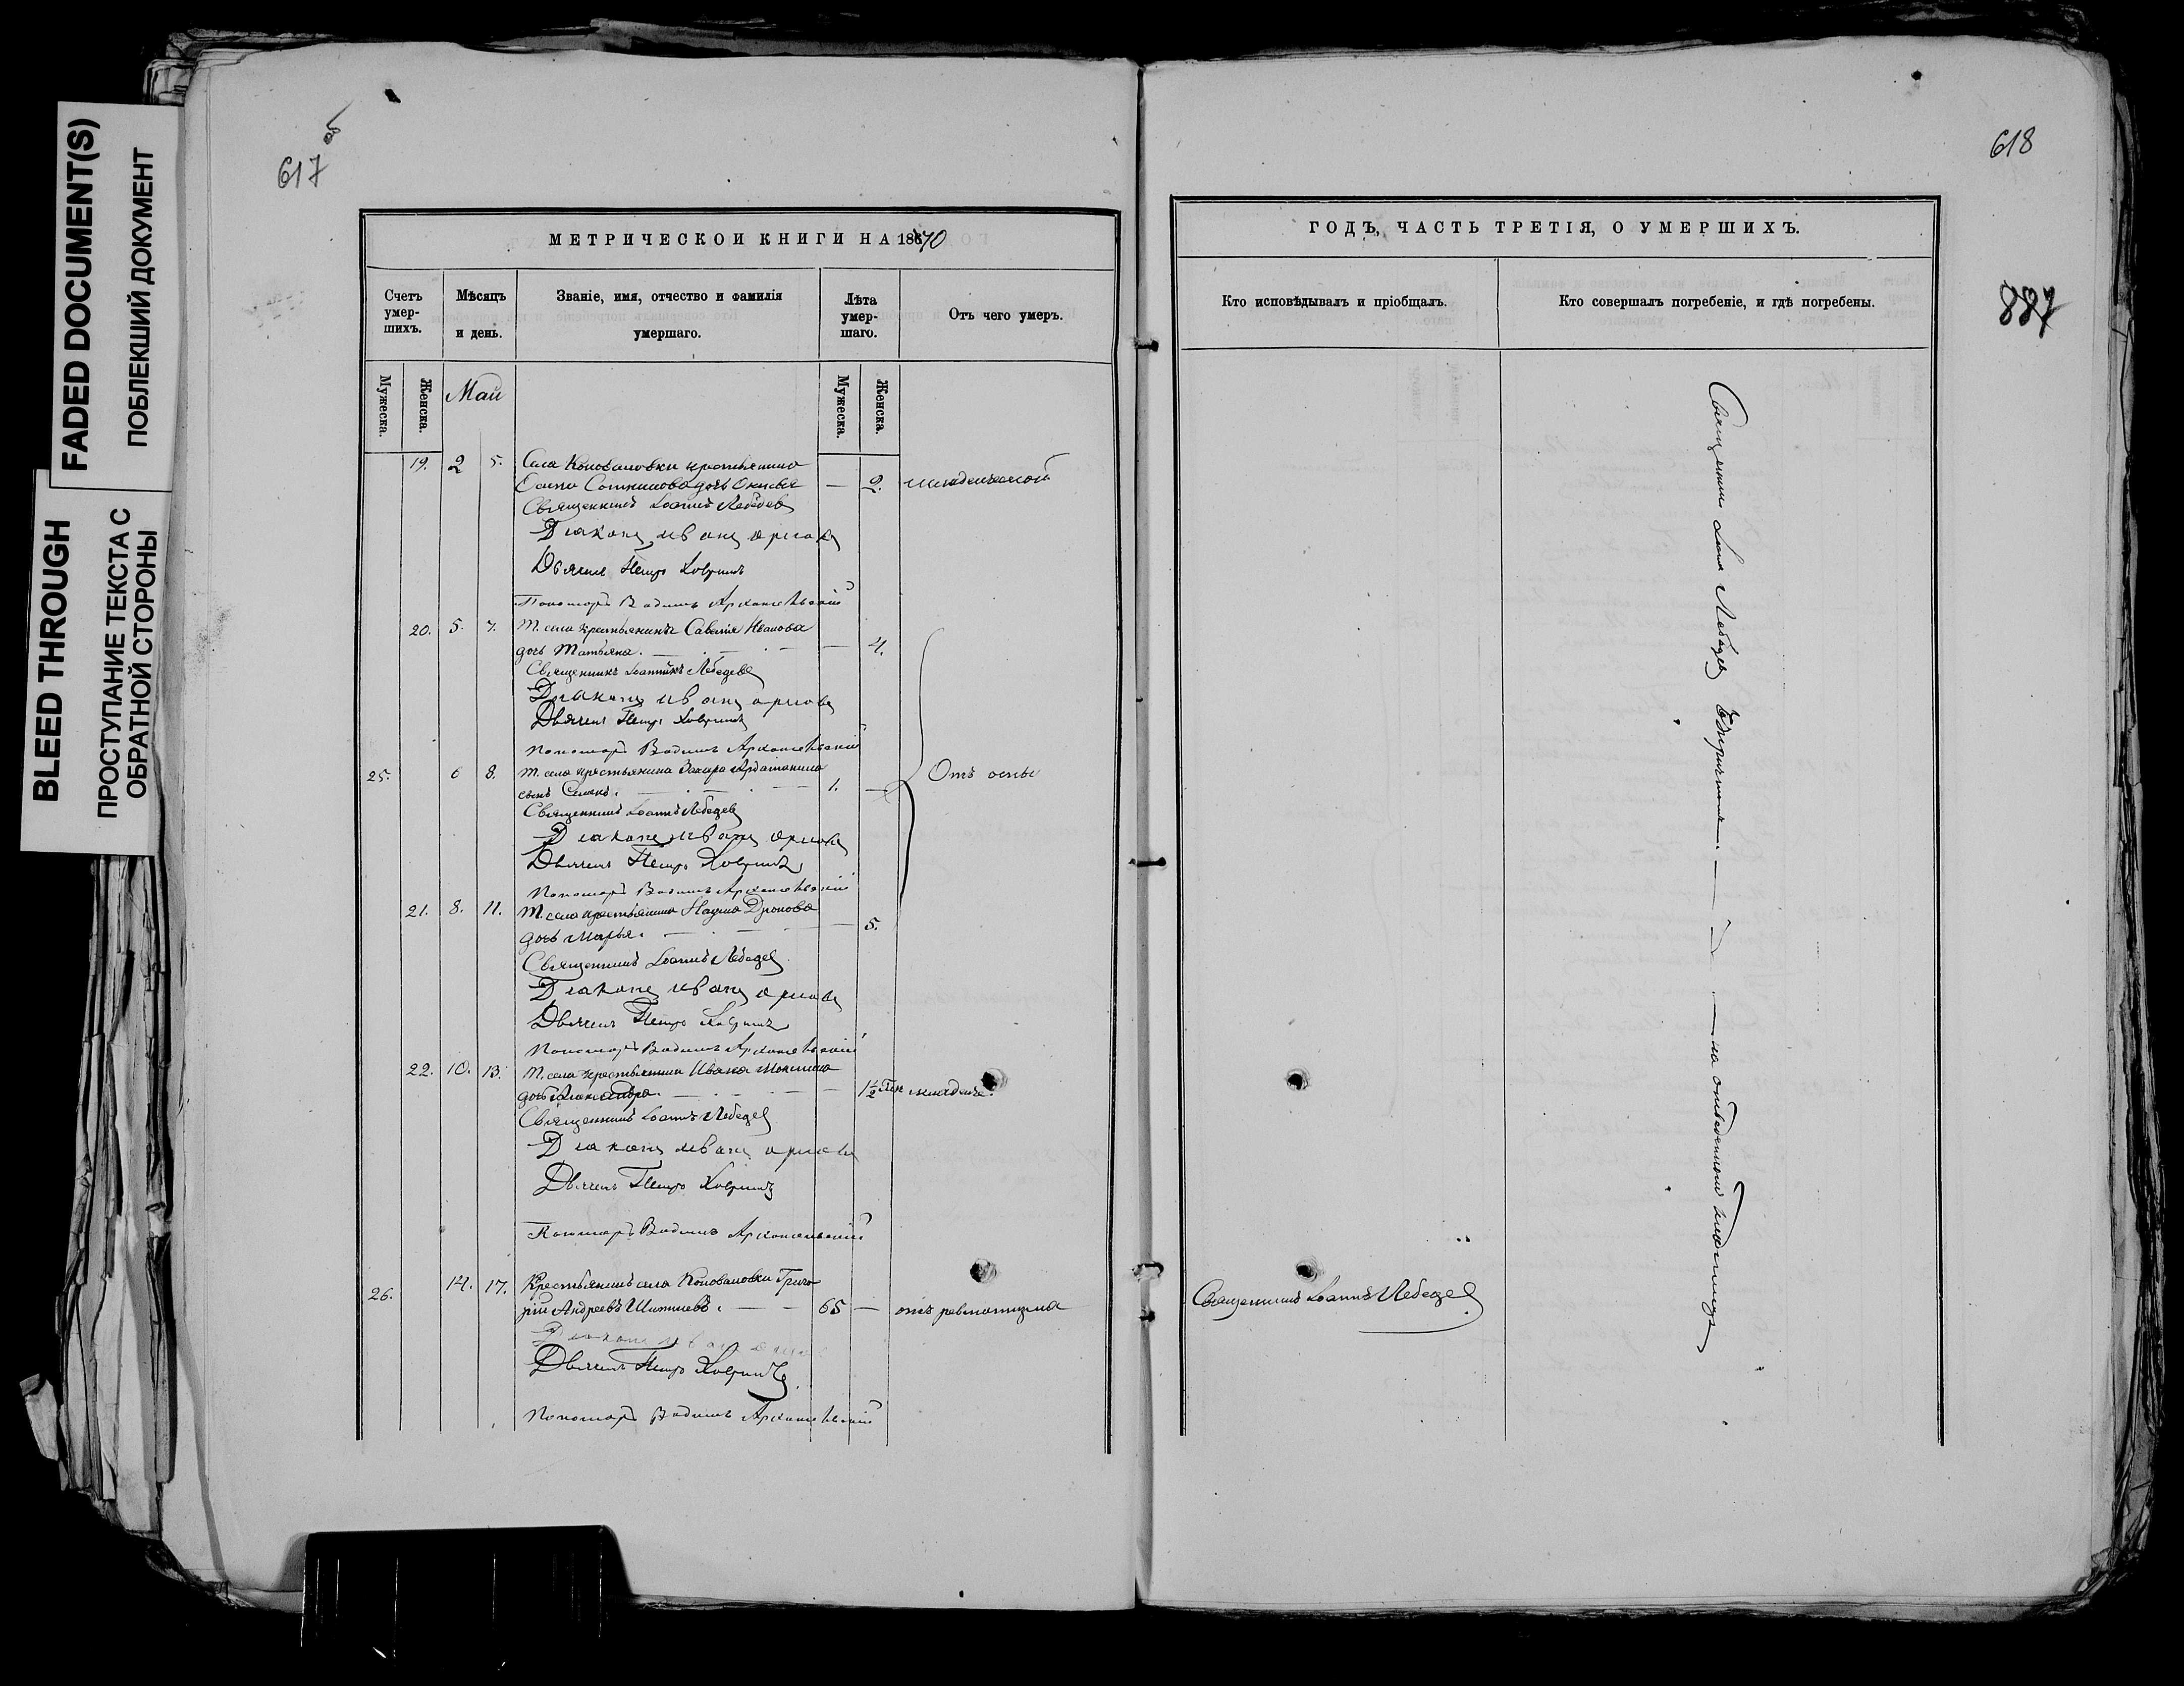 FADED DOCUMENT(S)
ПОБЛЕКШИЙ ДОКУМЕНТ
BLEED THROUGH
ПРОСТУПАНИЕ ТЕКСТА С
ОБРАТНОЙ СТОРОНЫ
617 об
МЕТРИЧЕСКОЙ КНИГИ НА 1870
Счетъ умер-шихъ.
Мѣсяцъ и день.
Званіе, имя, отчество и фамилія умершаго.
Лѣта умер-шаго.
Отъ чего умеръ.
Мужеска.
Женска.
Май
Мужеска.
Женска.
19. 2 5. Села Коноваловки крестьянина
дочь — 2. младенческой
Священникъ Іоаннъ Лебедев
Діаконъ Иванъ Орлов
Дьячекъ Петръ Ховринъ
Пономарь Вадимъ Архангельскій
20. 5. 7. Т. села крестьянина Савелія Иванова
дочь Татьяна. — 4.
Священникъ Іоаннъ Лебедев
Діаконъ Иванъ Орлов
Дьячекъ Петръ Ховринъ
Пономарь Вадимъ Архангельскій
25. 6 8. Т. села крестьянина Захара
сынъ 1. — Отъ оспы
Священникъ Іоаннъ Лебедев
Діаконъ Иванъ Орлов
Дьячекъ Петръ Ховринъ
Пономарь Вадимъ Архангельскій
21. 8. 11. Т. села крестьянина Наума Дронова
дочь Марья. — 5.
Священникъ Іоаннъ Лебедев
Діаконъ Иванъ Орлов
Дьячекъ Петръ Ховринъ
Пономарь Вадимъ Архангельскій
22. 10. 13. Т. села крестьянина Ивана
дочь Александра. — 1½ младенч.
Священникъ Іоаннъ Лебедев
Діаконъ Иванъ Орлов
Дьячекъ Петръ Ховринъ
Пономарь Вадимъ Архангельскій
26. 14. 17. Крестьянинъ села Коноваловки Григо
рій Андреевъ 65 — отъ ревматизма
Діаконъ Иванъ
Дьячекъ Петръ Ховринъ
Пономарь Вадимъ Архангельскій
618
887
ГОДЪ, ЧАСТЬ ТРЕТІЯ, О УМЕРШИХЪ.
Кто исповѣдывалъ и пріобщалъ.
Кто совершалъ погребеніе, и гдѣ погребены.
Священникъ Іоаннъ Лебедев
Священникъ Іоаннъ Лебедев съ причтомъ на отведенномъ кладбищѣ